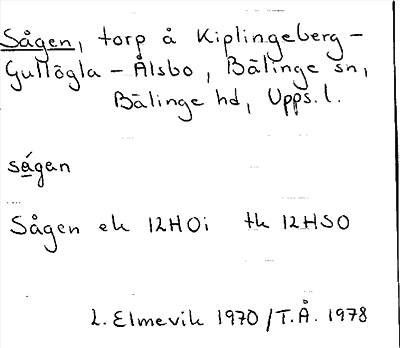 Sågen, torp å Kiplingeberg –
Gullögla – Ålsbo, Bälinge sn,
Bälinge hd, Upps. l.
ságan
Sågen ek 12H0i tk 12HSO
L. Elmevik 1970/T.Å. 1978